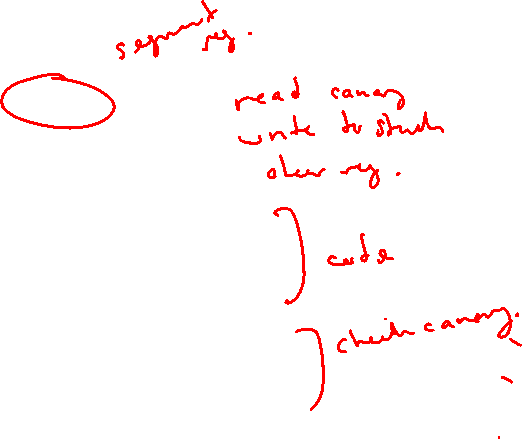 segment
reg.
read canary
write to stack
clear reg.
code
check canary.